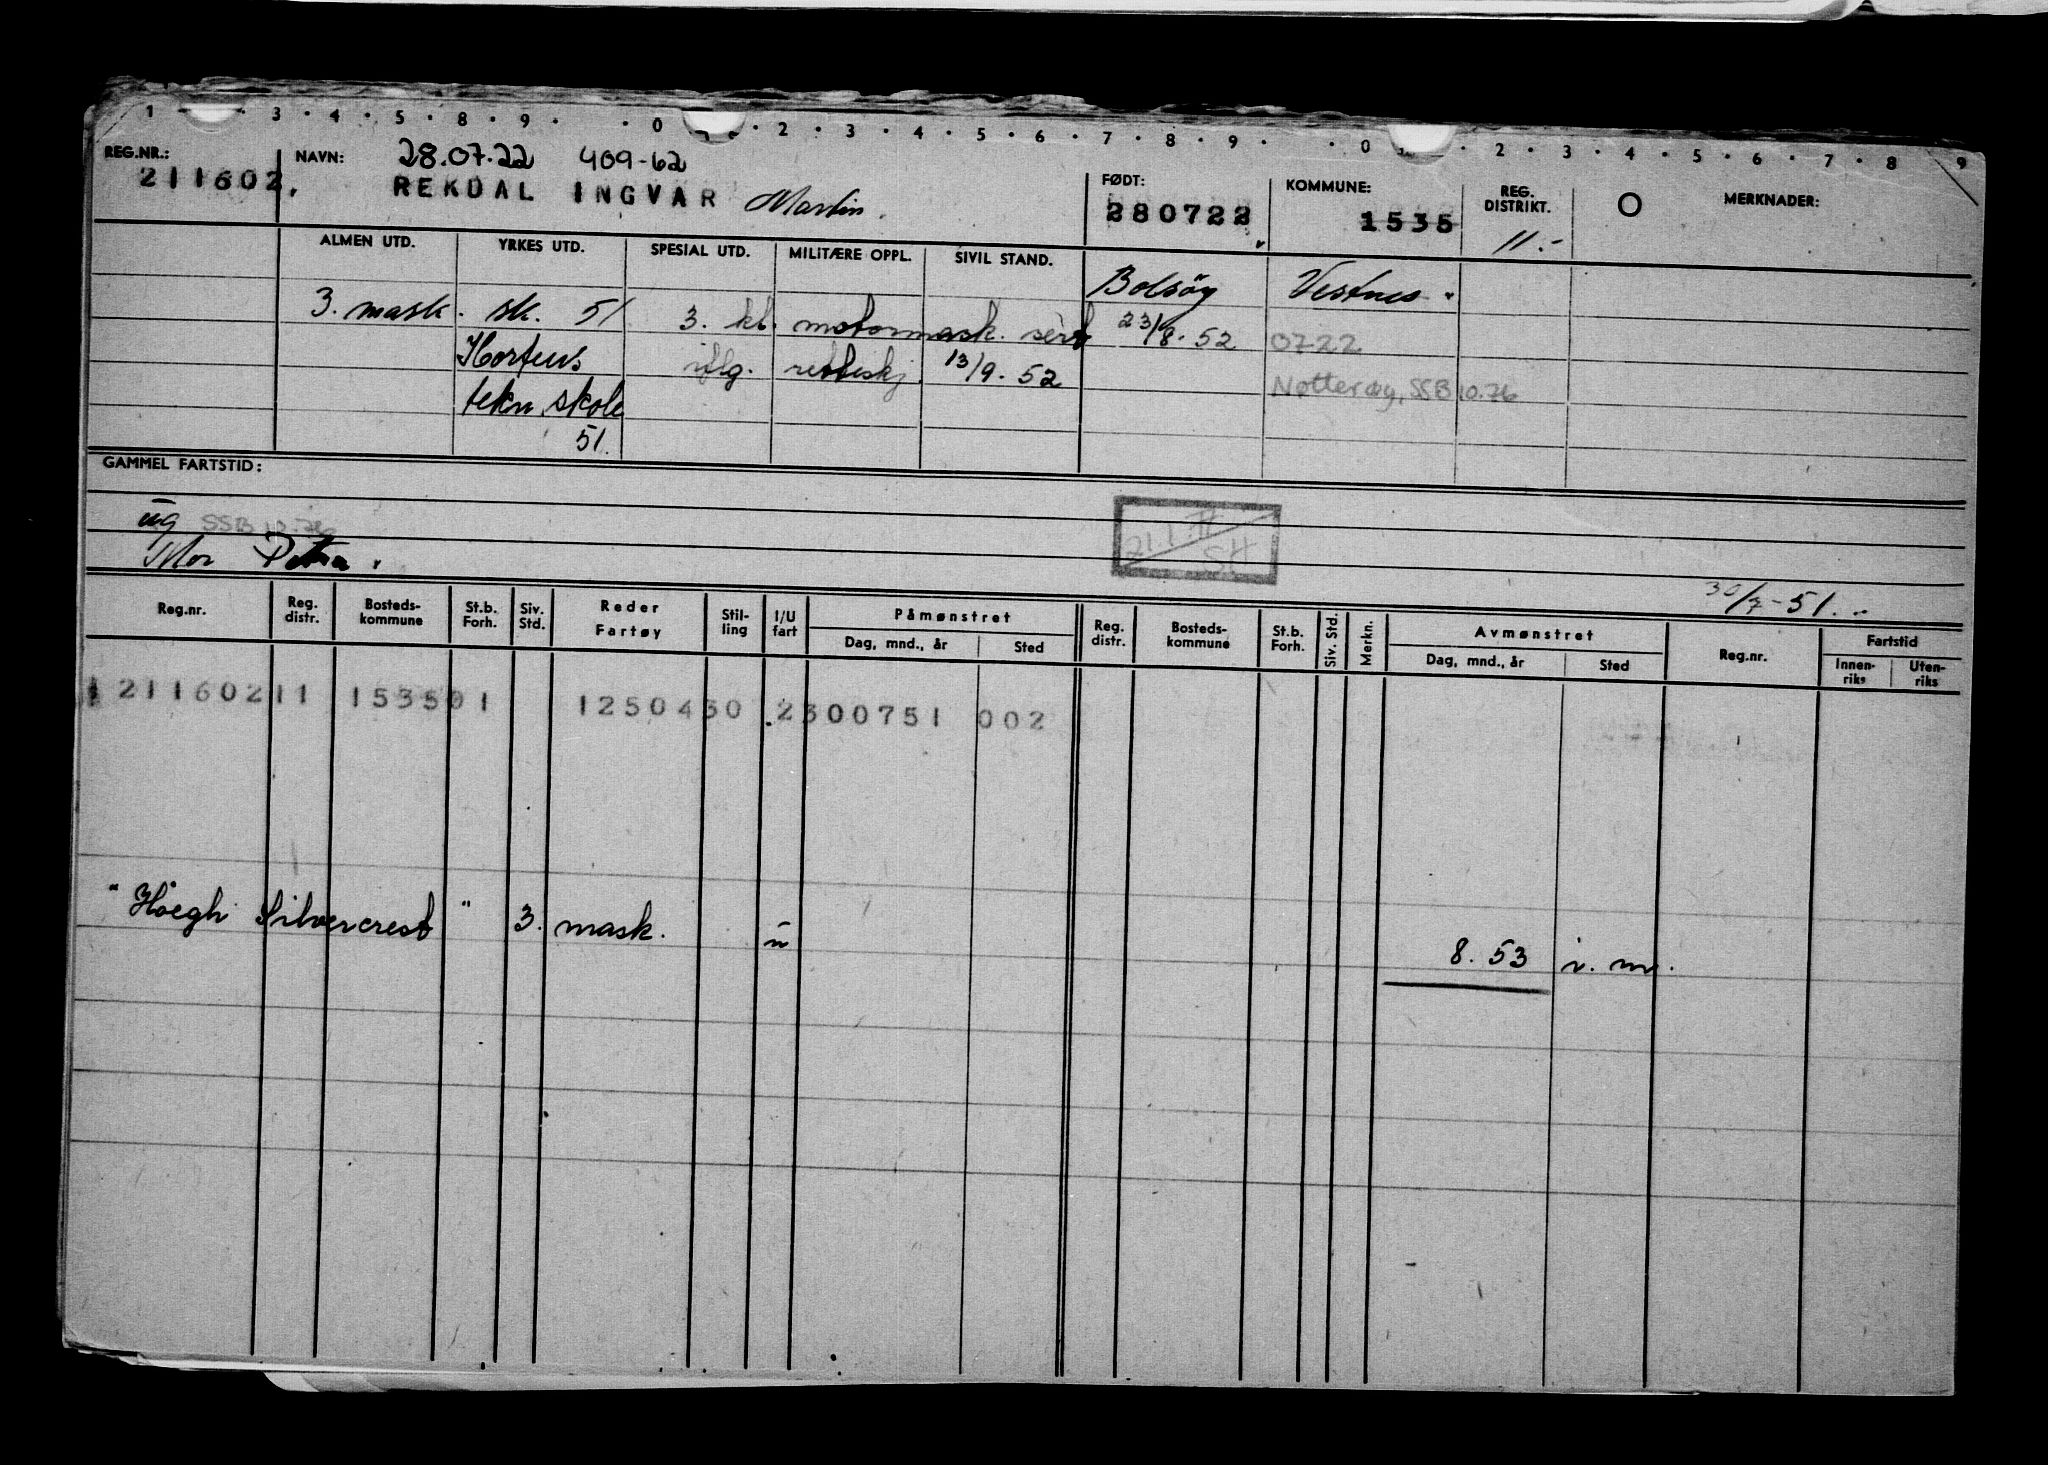 1 · 3 · 4 · 5 · 8 · 9 · · 0 · 2 · 3 · 4 · 5 · 6 · 7 · 8 · 9 · · 0 · 2 · 3 · 4 · 5 · 6 · 7 · 8 · 9
REG.NR.: NAVN: 28.07.22 409-62 FØDT: KOMMUNE: REG. DISTRIKT. O MERKNADER:
211602. REKDAL INGVAR Martin. 280722 1535 11.-
ALMEN UTD. YRKES UTD. SPESIAL UTD. MILITÆRE OPPL. SIVIL STAND. Bolsöy Vestnes.
3. mask. sk. 51 3. kl. motormask. sert 23/8.52 0722
Hortens iflg. rettskj. 13/9.52 Nøtterøy, SSB 10.76
tekn. skole
51.
GAMMEL FARTSTID:
ug SSB 10.76
Mor Petra. SH
30/7-51.-
Reg.nr. Reg. distr. Bosteds- kommune St.b. Forh. Siv. Std. Reder Fartøy Stil- ling I/U fart Påmønstret Reg. distr. Bosteds- kommune St.b. Forh. Siv. Std. Merkn. Avmønstret Reg.nr. Fartstid
Dag, mnd., år Sted Dag, mnd., år Sted Innen- riks Uten- riks
1 211602 11 1535 01 1250430 2300751 002
"Höegh Silvercrest" 3. mask. u 8.53 i. m.